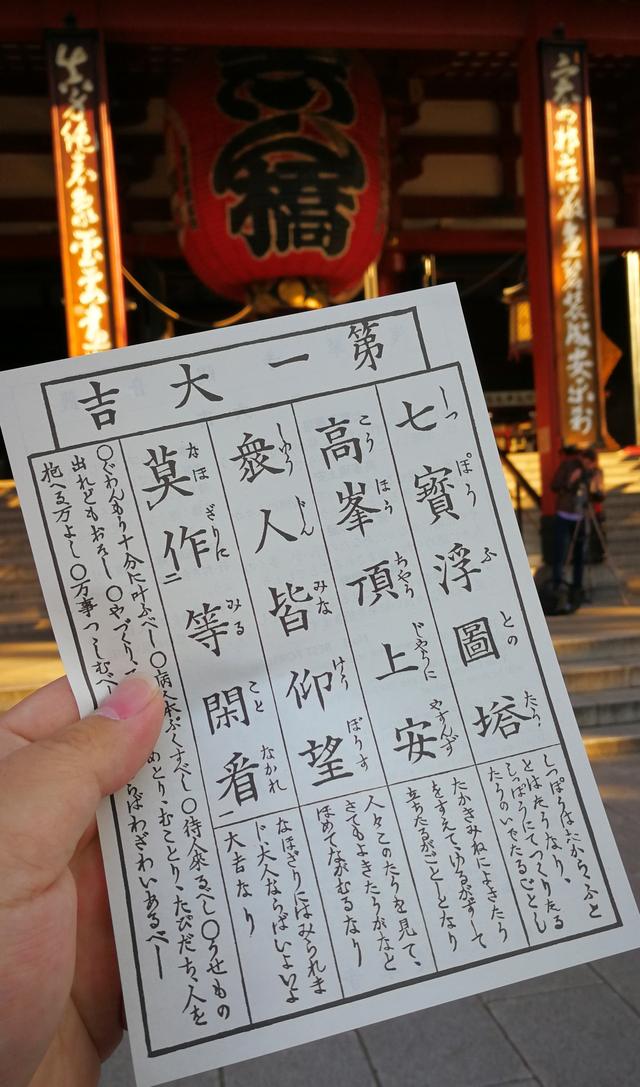 志ん橋
第一大吉
七寶浮圖塔
しつ ぽう ふ との たう
しつぽうは六から、ふと
とはたうなり、
しつぽうにてつくりたる
たうのいでたるごとし
高峯頂上安
こう ほう ちやう じやうに やすんず
たかきみねによきたう
立ちたるがごとしとなり
衆人皆仰望
しゆう じん みな げう ぼうす
人々このたうを見て、
さてもよきたうがなと
ほめてながむるなり
莫作二等閑看一
なほ ざりに みる こと なかれ
なほざりにはみられま
じ大人ならばいよいよ
大吉なり
○ぐわんもう十分に叶ふべし ○病人本ぷくすべし ○待人来るべし ○うせもの
出れどもおそし ○やづくり、 めとり、むことり、たびだち、人を
抱へる万よし ○万事つゝしむべし らばわざわいあるべし